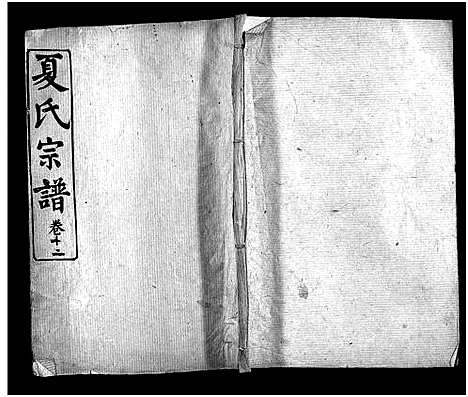 夏氏宗譜
卷十二